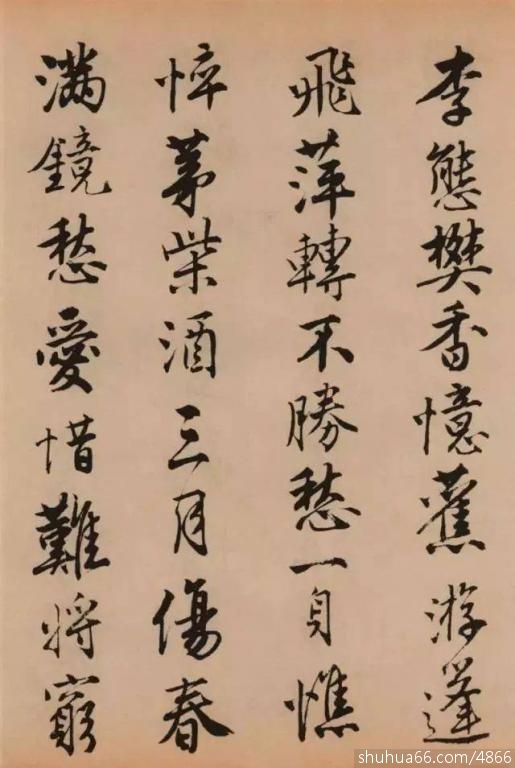 李態樊香憶舊游蓬
飛萍轉不勝愁一身憔
悴茅柴酒三月傷春
滿鏡愁愛惜難將窮
shuhua66.com/4866